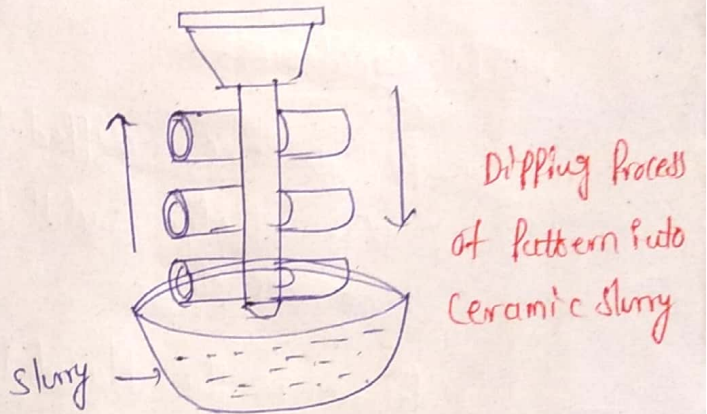 Dipping Process
of Pattern into
Ceramic Slurry
Slurry